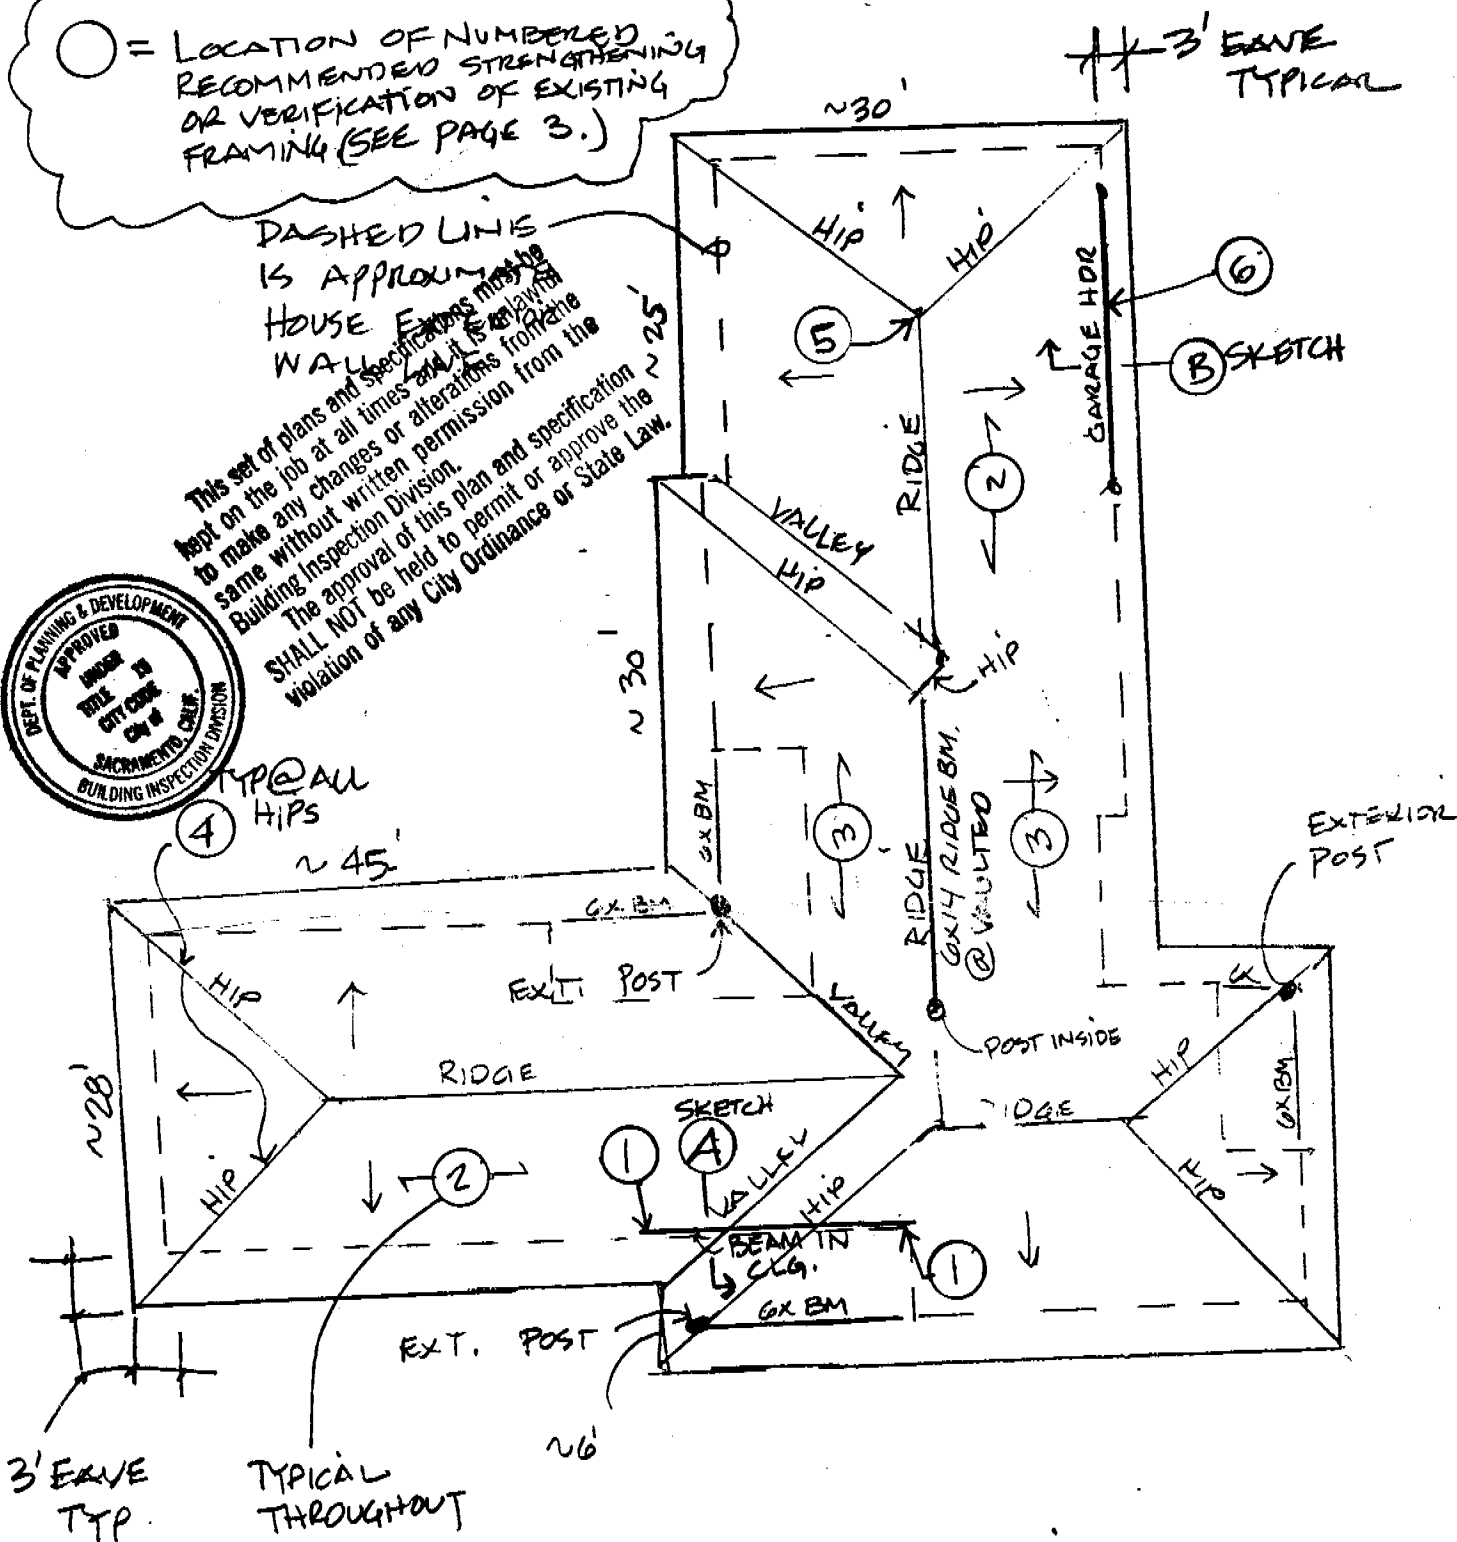 = LOCATION OF NUMBERED
RECOMMENDED STRENGTHENING
OR VERIFICATION OF EXISTING
FRAMING. (SEE PAGE 3.)
3' EAVE
TYPICAL
~30'
DASHED LINE
IS APPROXIMATE
HOUSE
WALL
This set of plans and specifications must be
kept on the job at all times and it is unlawful
to make any changes or alterations from the
same without written permission from the
Building Inspection Division.
The approval of this plan and specification
SHALL NOT be held to permit or approve the
violation of any City Ordinance or State Law.
DEPT. OF PLANNING & DEVELOPMENT
BUILDING INSPECTION DIVISION
APPROVED
UNDER
TITLE
CITY CODE
City of
SACRAMENTO, CALIF.
~25'
HIP
HIP
GARAGE HDR
6
5
B SKETCH
RIDGE
2
VALLEY
HIP
HIP
~30'
6X BM
3
RIDGE
6X14 RIDGE BM.
@ VAULTED
3
EXTERIOR
POST
TYP@ALL
HIPS
4
~45'
6X BM
EXT. POST
VALLEY
6X
POST INSIDE
HIP
RIDGE
HIP
6X BM
RIDGE
~28'
SKETCH
1
A
VALLEY
HIP
2
HIP
HIP
BEAM IN
CLG.
1
6X BM
EXT. POST
~6'
3' EAVE
TYP.
TYPICAL
THROUGHOUT